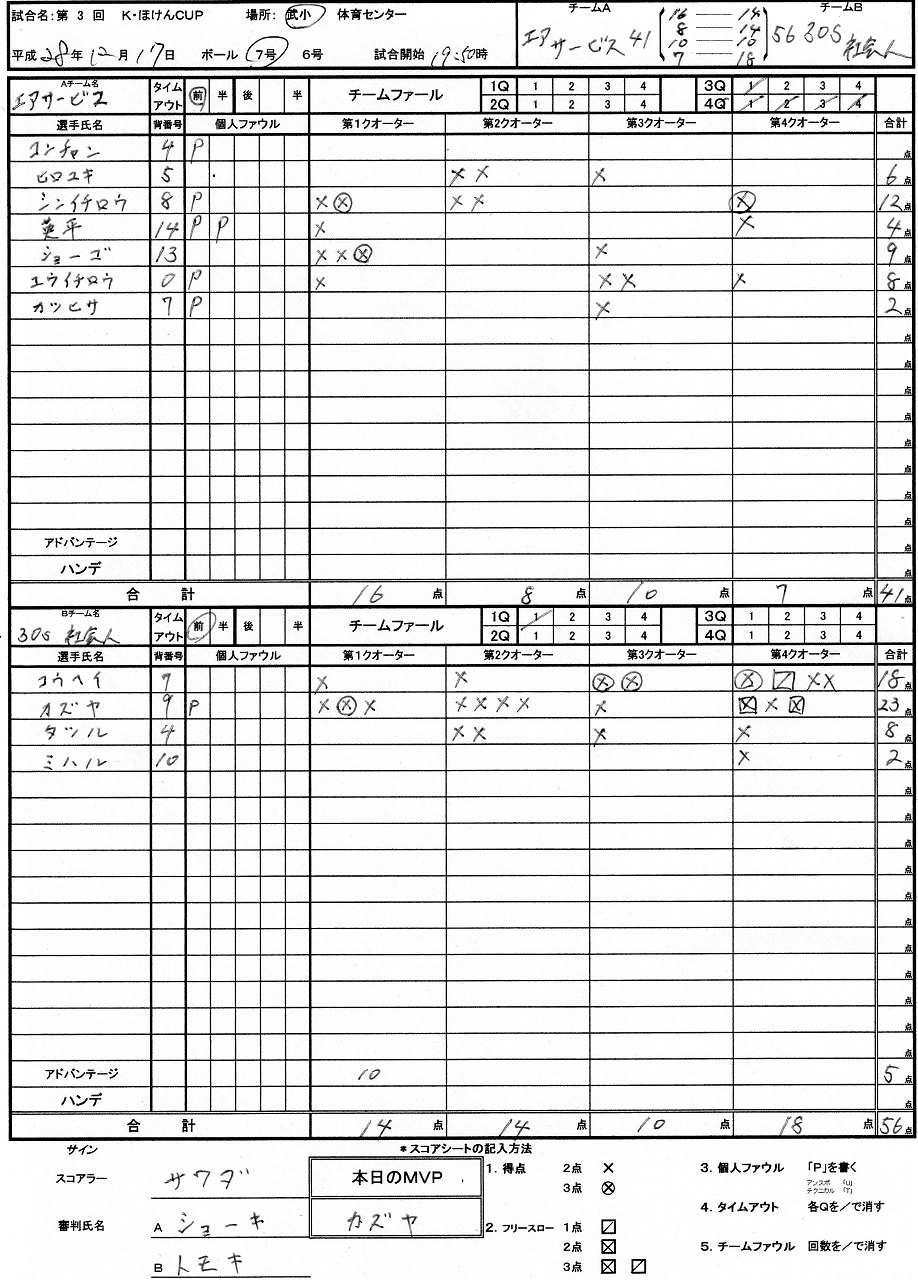 試合名:第 3 回 K・ほけんCUP 場所: 武小 体育センター
平成 28年 12月 17日 ボール 7号 6号 試合開始 19:50時
チームA チームB
エアサービス 41 56 30S 社会人
16 ― 14
8 ― 14
10 ― 10
7 ― 18
Aチーム名 エアサービス タイムアウト 前半 後半 チームファール 1Q 1 2 3 4 3Q 1 2 3 4
2Q 1 2 3 4 4Q 1 2 3 4
選手氏名 背番号 個人ファウル 第1クオーター 第2クオーター 第3クオーター 第4クオーター 合計
コンチャン 4 P 点
ヒロユキ 5 ×× × 6点
シンイチロウ 8 P ×⊗ ×× ⊗ 12点
英平 14 P P × × 4点
ショーゴ 13 ××⊗ × 9点
ユウイチロウ 0 P × ×× × 8点
カツヒサ 7 P × 2点
点
点
点
点
点
点
点
点
アドバンテージ 点
ハンデ 点
合 計 16点 8点 10点 7点 41点
Bチーム名 30S 社会人 タイムアウト 前半 後半 チームファール 1Q 1 2 3 4 3Q 1 2 3 4
2Q 1 2 3 4 4Q 1 2 3 4
選手氏名 背番号 個人ファウル 第1クオーター 第2クオーター 第3クオーター 第4クオーター 合計
コウヘイ 7 × × ⊗⊗ ⊗〼×× 18点
カズヤ 9 P ×⊗× ×××× × ☒×☒ 23点
タツル 4 ×× × × 8点
ミハル 10 × 2点
点
点
点
点
点
点
点
点
点
点
点
アドバンテージ 10 5点
ハンデ 点
合 計 14点 14点 10点 18点 56点
サイン
スコアラー サワダ
審判氏名 A ショーキ
B トモキ
本日のMVP
カズヤ
*スコアシートの記入方法
1. 得点 2点 ×
3点 ⊗
2. フリースロー 1点 〼
2点 ☒
3点 ☒ 〼
3. 個人ファウル 「P」を書く
アンスポ 「U」
テクニカル 「T」
4. タイムアウト 各Qを/で消す
5. チームファウル 回数を/で消す